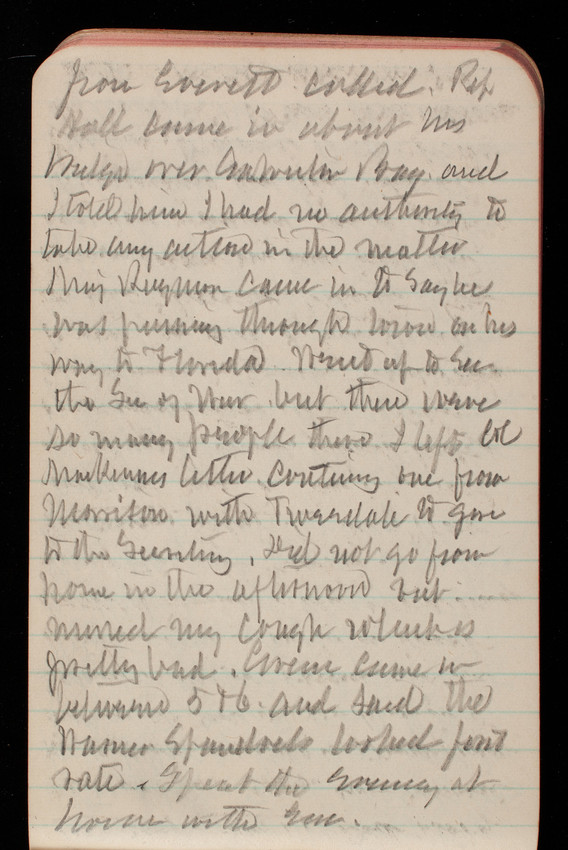 from Everett called. Rep
Hall came in about his
bridge over Galveston Bay and
I told him I had no authority to
take any action in the matter
Maj Raymon came in to say he
was passing through town on his
way to Florida. Went up to see
the Sec of War but there were
so many people there I left Col
Mackenzies letter containing one from
Morrison with Truesdale to give
to the Secretary. Did not go from
home in the afternoon but
nursed my cough which is
pretty bad. Green came in
between 5 & 6 and said the
Warner Spandrels looked first
rate. Spent the Evening at
home with Em.